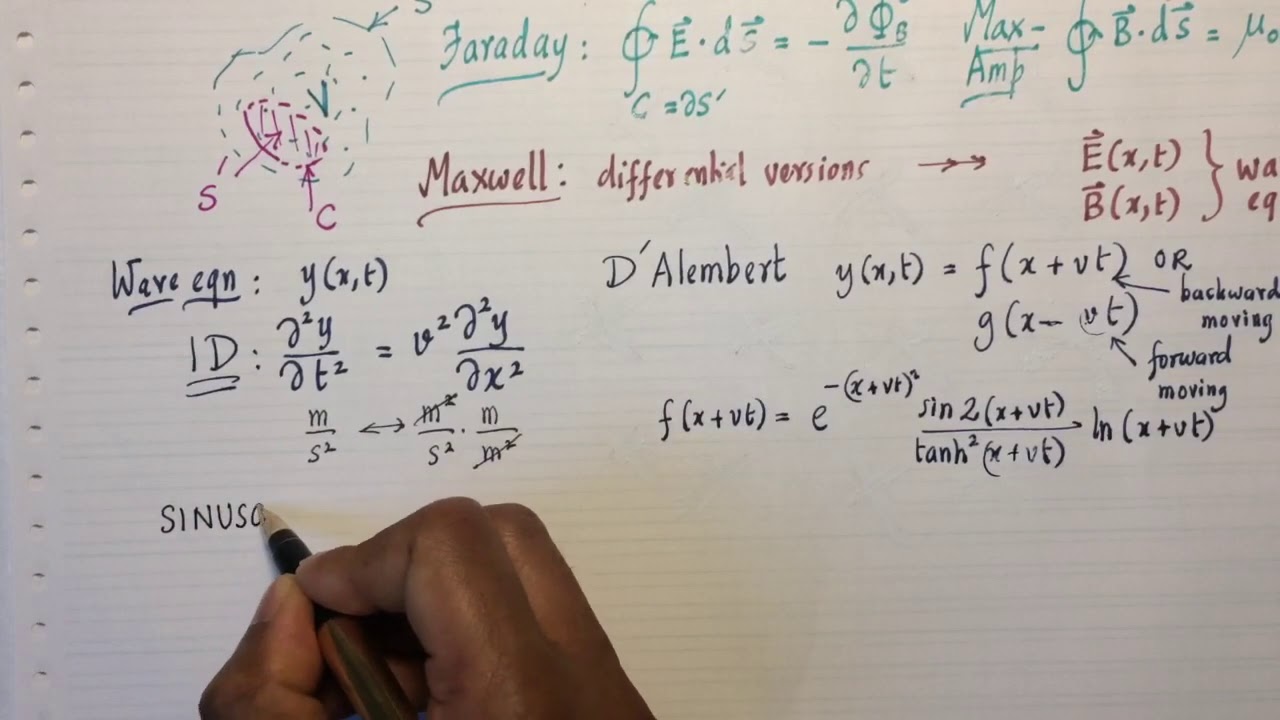 S
Faraday: ∮ E⃗ · dS⃗ = − ∂Φ_B/∂t
C = ∂S'
Max-Amp ∮ B⃗ · dS⃗ = μ₀
V
S
C
Maxwell: differential versions →→ E⃗(x,t)
B⃗(x,t) } wa
eq
Wave eqn: y(x,t)
1D: ∂²y/∂t² = v² ∂²y/∂x²
m/s² ↔ m²/s² · m/m²
D'Alembert y(x,t) = f(x+vt) OR
backward moving
g(x− vt)
forward moving
f(x+vt) = e^−(x+vt)² sin2(x+vt)/tanh²(x+vt) ln(x+vt)
SINUSO